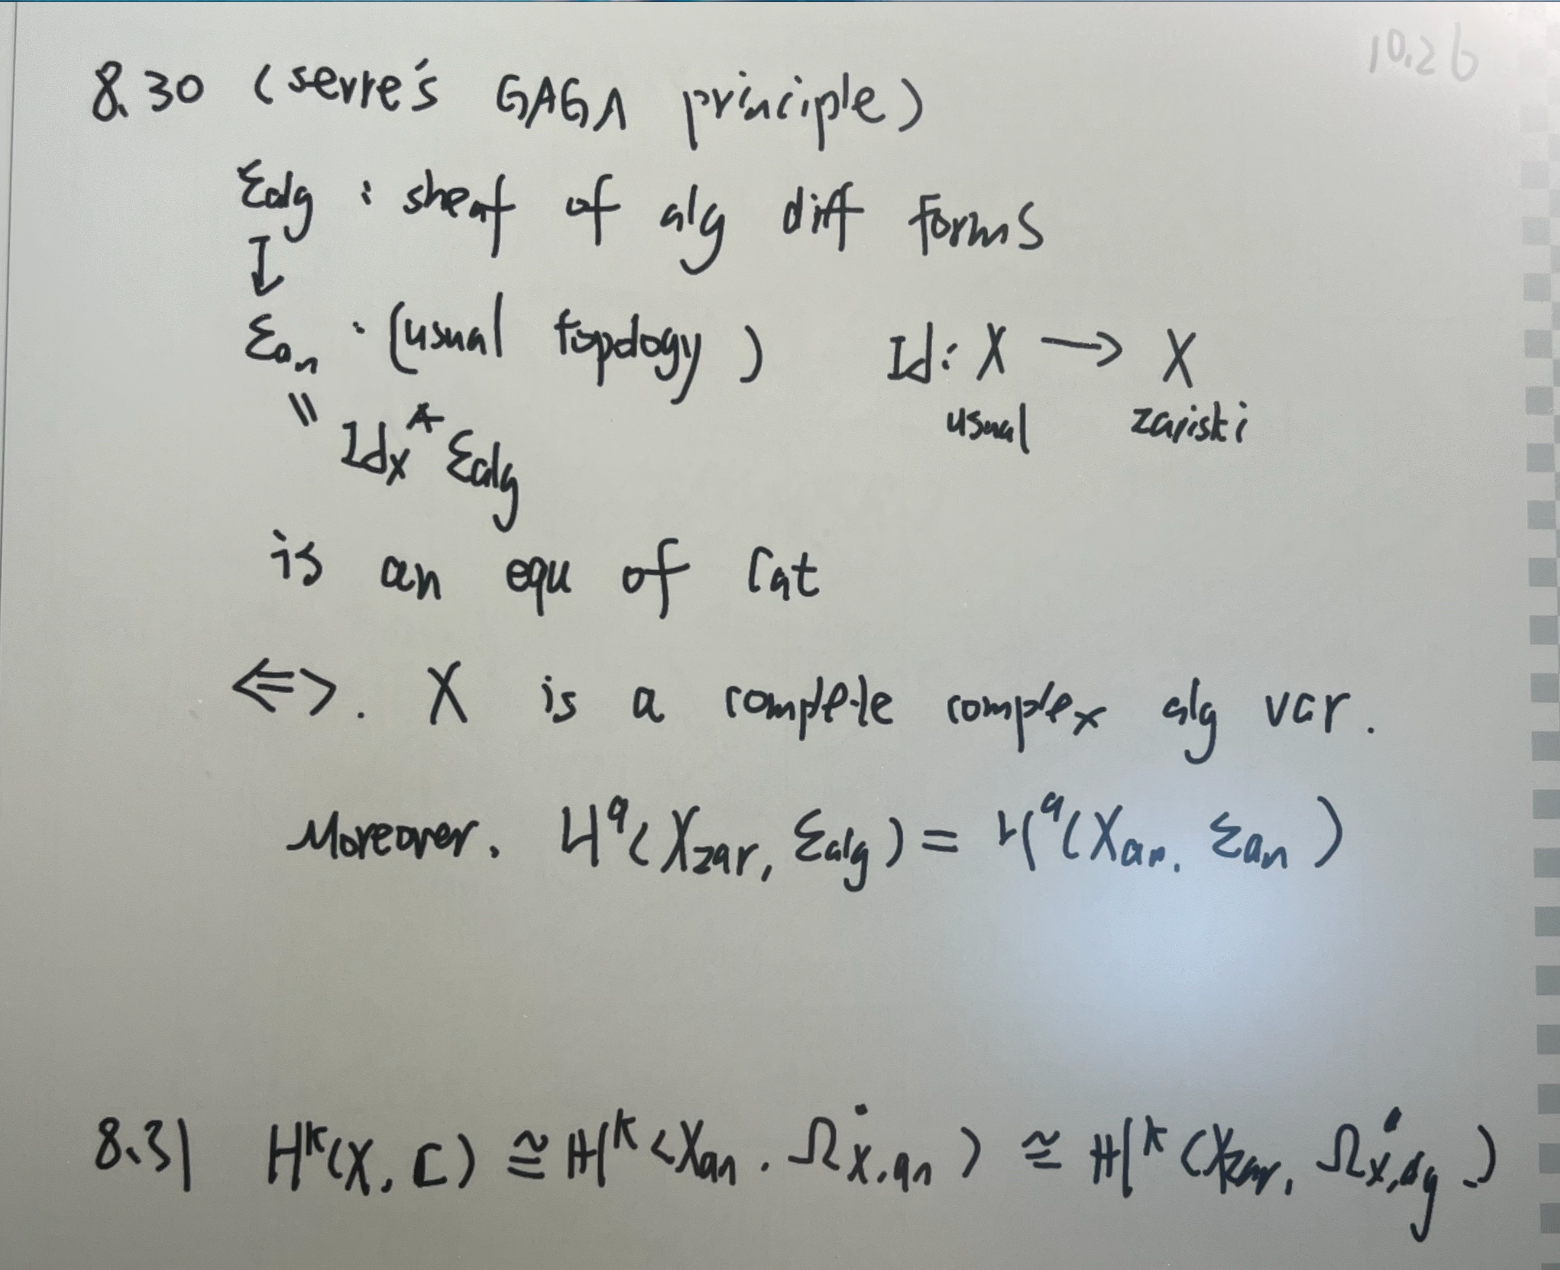 10.26
8.30 (serre's GAGA principle)
Ɛalg : sheaf of alg diff forms
↧
Ɛan : (usual topology) Id: X → X
usual zariski
" Idx* Ɛalg
is an equ of Cat
<=>. X is a complete complex alg var.
Moreover. H^q(Xzar, Ɛalg) = H^q(Xan, Ɛan)
8.31 H^k(X, C) ≅ ℍ^k(Xan, Ω^•X,an) ≅ ℍ^k(Xzar, Ω^•X,alg)